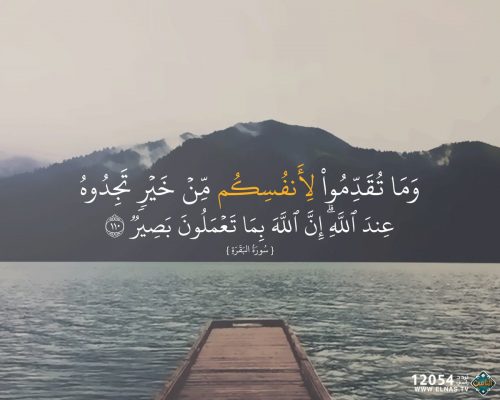 وَمَا تُقَدِّمُوا۟ لِأَنفُسِكُم مِّنْ خَيْرٍ تَجِدُوهُ
عِندَ ٱللَّهِ ۗ إِنَّ ٱللَّهَ بِمَا تَعْمَلُونَ بَصِيرٌ ١١٠
{ سُورَةُ البَقَرَةِ }
12054
WWW.ELNAS.TV
الناس